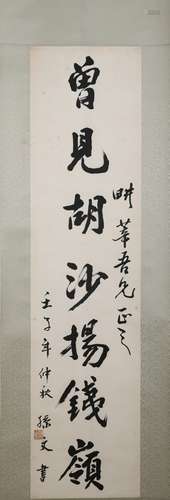 畊華吾兄正之
曾見胡沙揚錢嶺
壬子年仲秋 孫文書